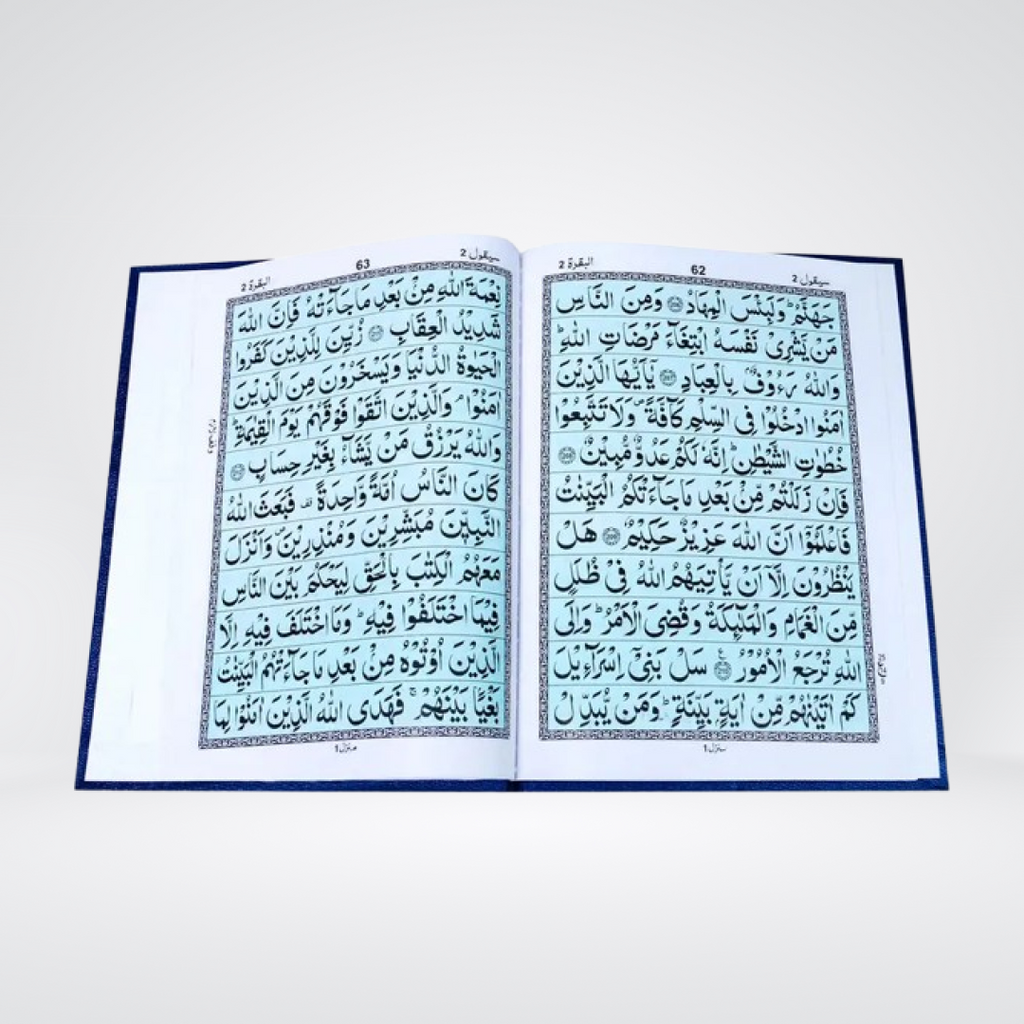 البقرة 2
62
سيقول 2
جَهَنَّمُ ؕ وَلَبِئْسَ الْمِهَادُ ﴿۲۰۶﴾ وَمِنَ النَّاسِ
مَنْ يَّشْرِىْ نَفْسَهُ ابْتِغَآءَ مَرْضَاتِ اللّٰهِ ؕ
وَاللّٰهُ رَءُوْفٌۢ بِالْعِبَادِ ﴿۲۰۷﴾ يٰۤاَيُّهَا الَّذِيْنَ
اٰمَنُوا ادْخُلُوْا فِى السِّلْمِ كَآفَّةً ۪ وَلَا تَتَّبِعُوْا
خُطُوٰتِ الشَّيْطٰنِ ؕ اِنَّهٗ لَكُمْ عَدُوٌّ مُّبِيْنٌ ﴿۲۰۸﴾
فَاِنْ زَلَلْتُمْ مِّنْۢ بَعْدِ مَا جَآءَتْكُمُ الْبَيِّنٰتُ
فَاعْلَمُوْۤا اَنَّ اللّٰهَ عَزِيْزٌ حَكِيْمٌ ﴿۲۰۹﴾ هَلْ
يَنْظُرُوْنَ اِلَّاۤ اَنْ يَّاْتِيَهُمُ اللّٰهُ فِىْ ظُلَلٍ
مِّنَ الْغَمَامِ وَالْمَلٰٓئِكَةُ وَقُضِىَ الْاَمْرُ ؕ وَاِلَى
اللّٰهِ تُرْجَعُ الْاُمُوْرُ ﴿۲۱۰﴾ سَلْ بَنِىْۤ اِسْرَآءِيْلَ
كَمْ اٰتَيْنٰهُمْ مِّنْ اٰيَةٍۭ بَيِّنَةٍ ؕ وَمَنْ يُّبَدِّلْ
منزل 1
البقرة 2
63
سيقول 2
نِعْمَةَ اللّٰهِ مِنْۢ بَعْدِ مَا جَآءَتْهُ فَاِنَّ اللّٰهَ
شَدِيْدُ الْعِقَابِ ﴿۲۱۱﴾ زُيِّنَ لِلَّذِيْنَ كَفَرُوا
الْحَيٰوةُ الدُّنْيَا وَيَسْخَرُوْنَ مِنَ الَّذِيْنَ
اٰمَنُوْا ۘ وَالَّذِيْنَ اتَّقَوْا فَوْقَهُمْ يَوْمَ الْقِيٰمَةِ ؕ
وَاللّٰهُ يَرْزُقُ مَنْ يَّشَآءُ بِغَيْرِ حِسَابٍ ﴿۲۱۲﴾
كَانَ النَّاسُ اُمَّةً وَّاحِدَةً ۟ فَبَعَثَ اللّٰهُ
النَّبِيّٖنَ مُبَشِّرِيْنَ وَمُنْذِرِيْنَ ۪ وَاَنْزَلَ
مَعَهُمُ الْكِتٰبَ بِالْحَقِّ لِيَحْكُمَ بَيْنَ النَّاسِ
فِيْمَا اخْتَلَفُوْا فِيْهِ ؕ وَمَا اخْتَلَفَ فِيْهِ اِلَّا
الَّذِيْنَ اُوْتُوْهُ مِنْۢ بَعْدِ مَا جَآءَتْهُمُ الْبَيِّنٰتُ
بَغْيًۢا بَيْنَهُمْ ۚ فَهَدَى اللّٰهُ الَّذِيْنَ اٰمَنُوْا لِمَا
منزل 1